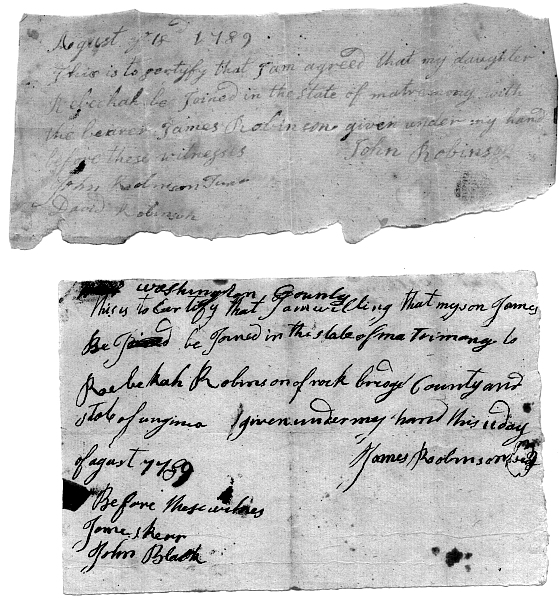 August ye 18 1789
This is to certyfy that I am agreed that my daughter
Rebechah be Joined in the state of matremony with
the bearer James Robinson given under my hand
before these witnesses John Robinson
John Robinson Junr
David Robinson
Washington County
this is to Certify that I am willing that my son James
Be Joined be Joined in the state of matrimony to
Reebekah Robinson of rock bridge County and
state of virginia given under my hand this 11 day
of agust 1789 James Robinson
Before these witnes
James kerr
John Black